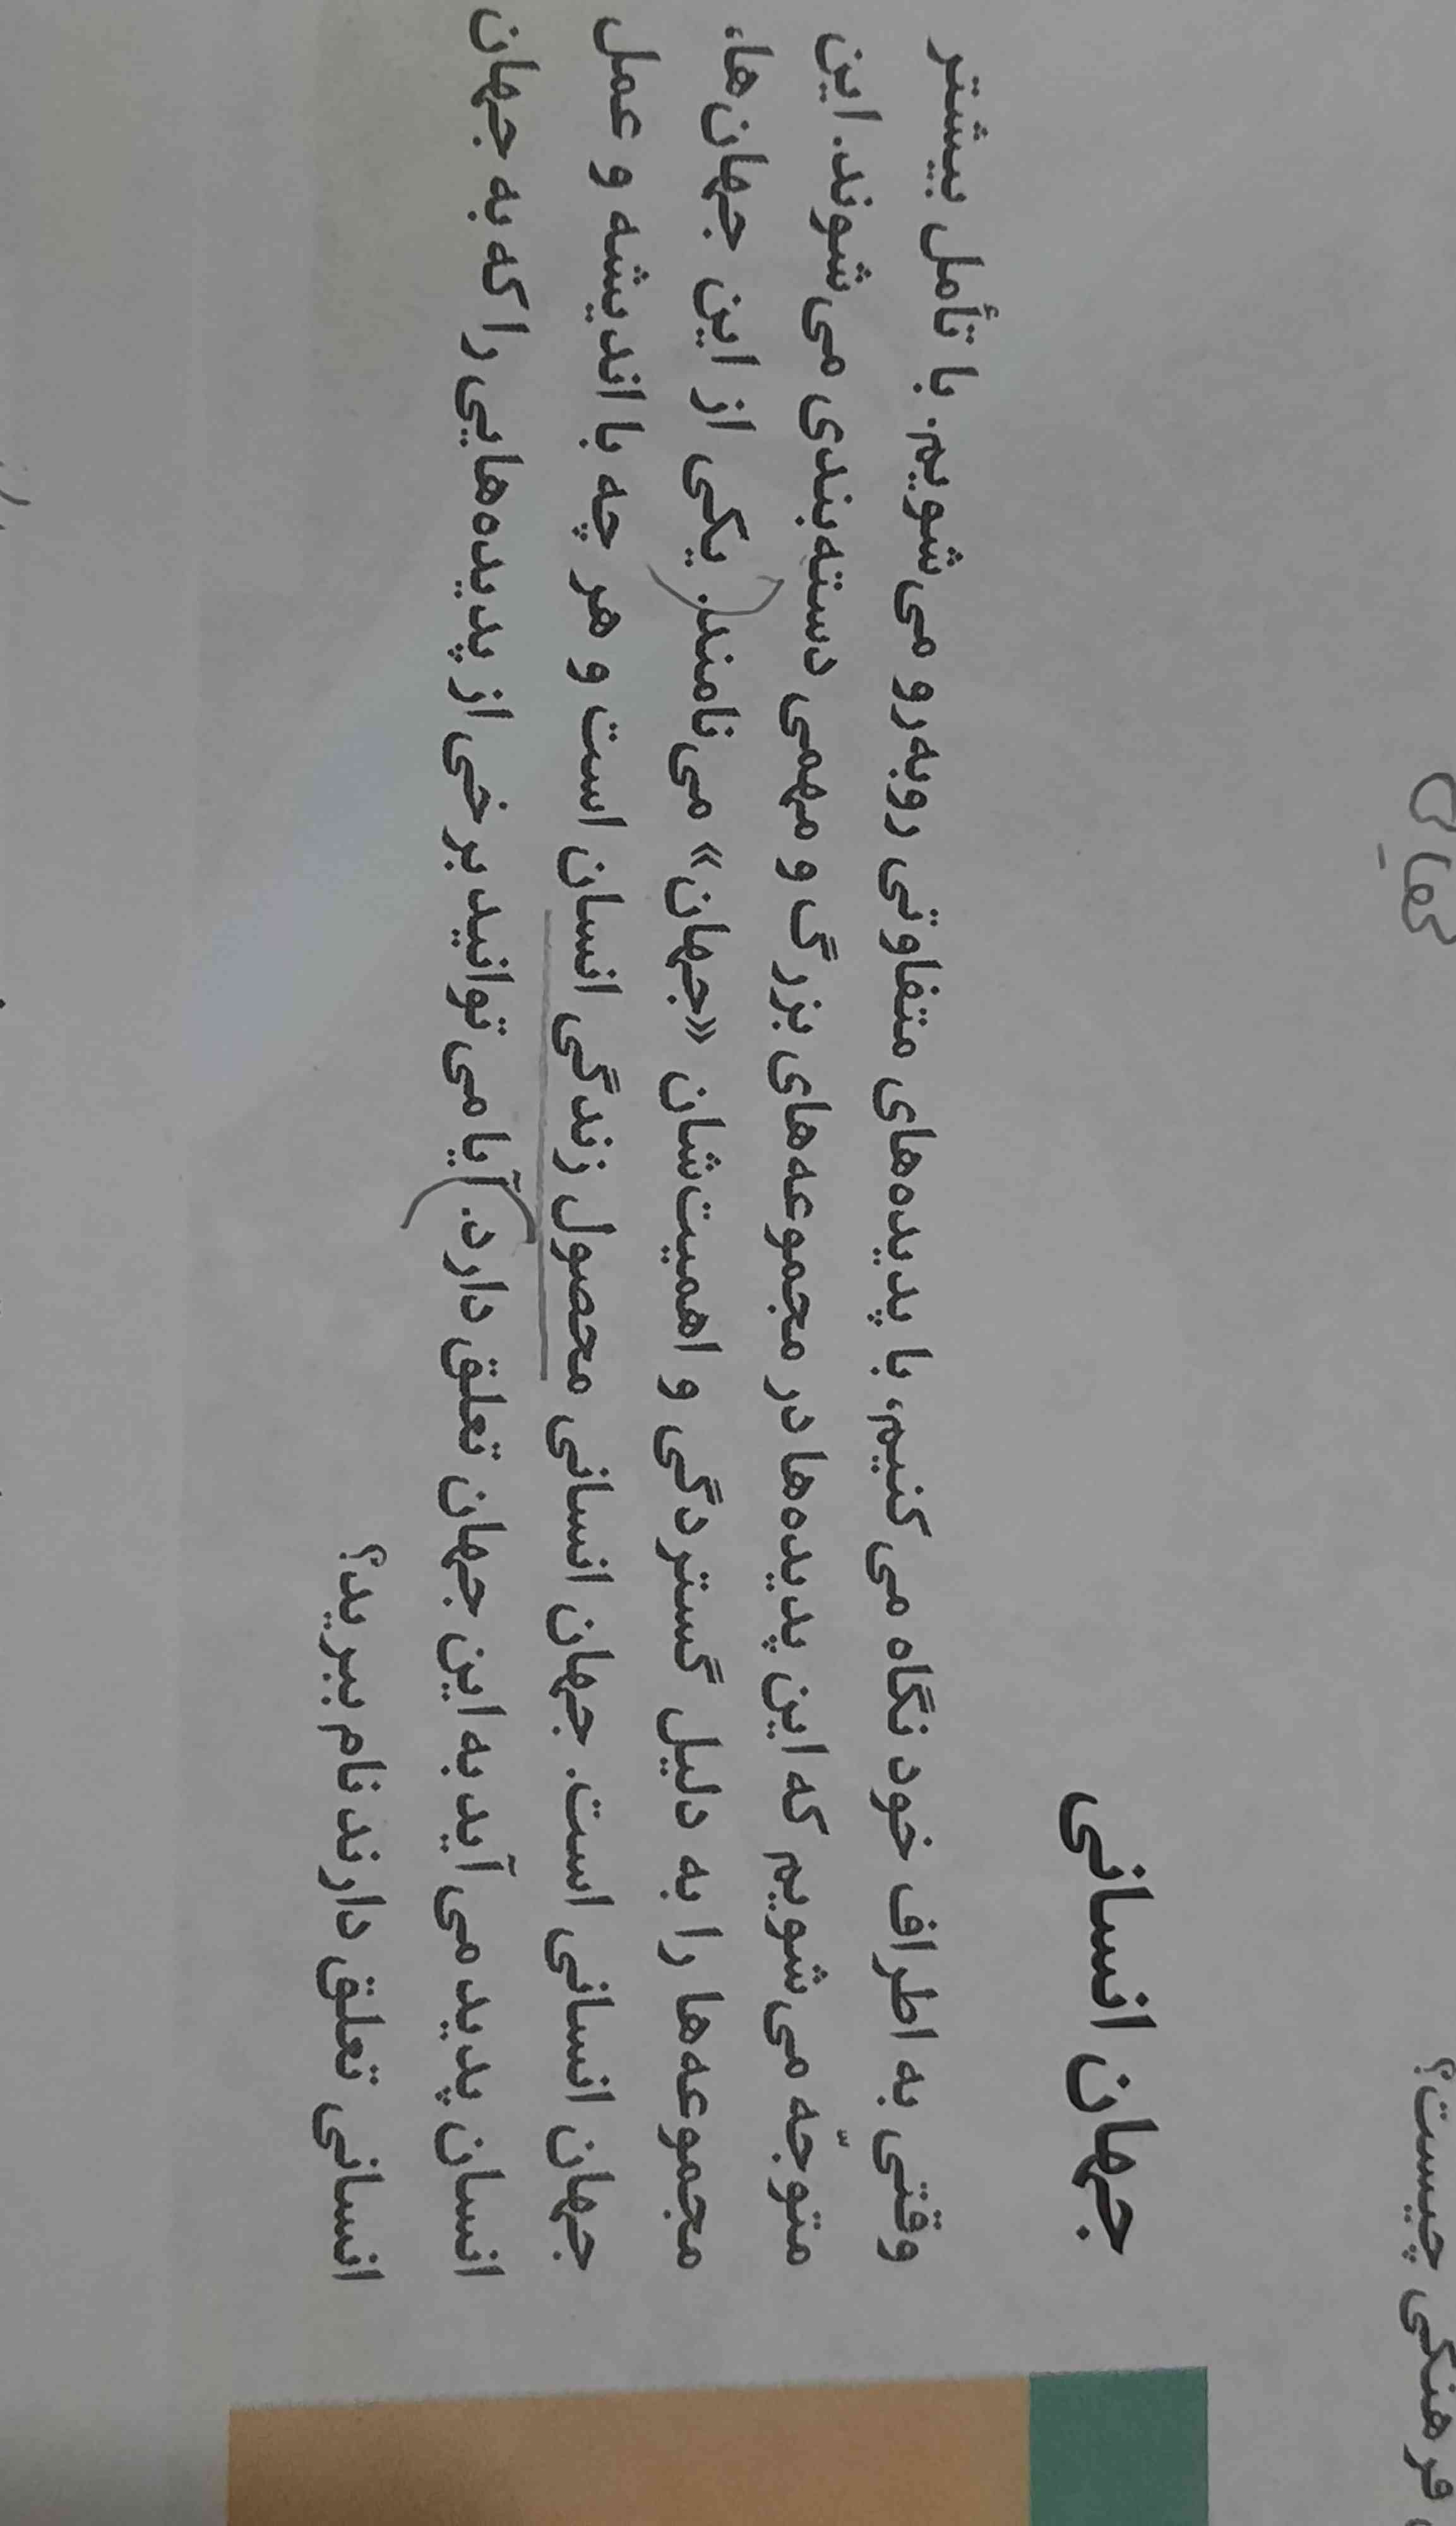 فرهنگی چیست؟
جهان انسانی
وقتی به اطراف خود نگاه می‌کنیم، با پدیده‌های متفاوتی روبه‌رو می‌شویم. با تأمل بیشتر
متوجّه می‌شویم که این پدیده‌ها در مجموعه‌های بزرگ و مهمی دسته‌بندی می‌شوند. این
مجموعه‌ها را به دلیل گستردگی و اهمیت‌شان «جهان» می‌نامند. یکی از این جهان‌ها،
جهان انسانی است. جهان انسانی محصول زندگی انسان است و هر چه با اندیشه و عمل
انسان پدید می‌آید به این جهان تعلق دارد. آیا می‌توانید برخی از پدیده‌هایی را که به جهان
انسانی تعلق دارند نام ببرید؟